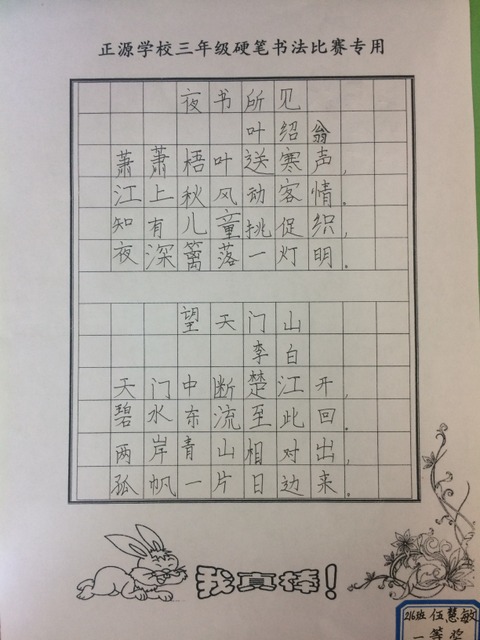 正源学校三年级硬笔书法比赛专用
夜书所见
叶绍翁
萧萧梧叶送寒声,
江上秋风动客情.
知有儿童挑促织,
夜深篱落一灯明.
望天门山
李白
天门中断楚江开,
碧水东流至此回.
两岸青山相对出,
孤帆一片日边来.
我真棒!
216班 伍慧敏
一等奖